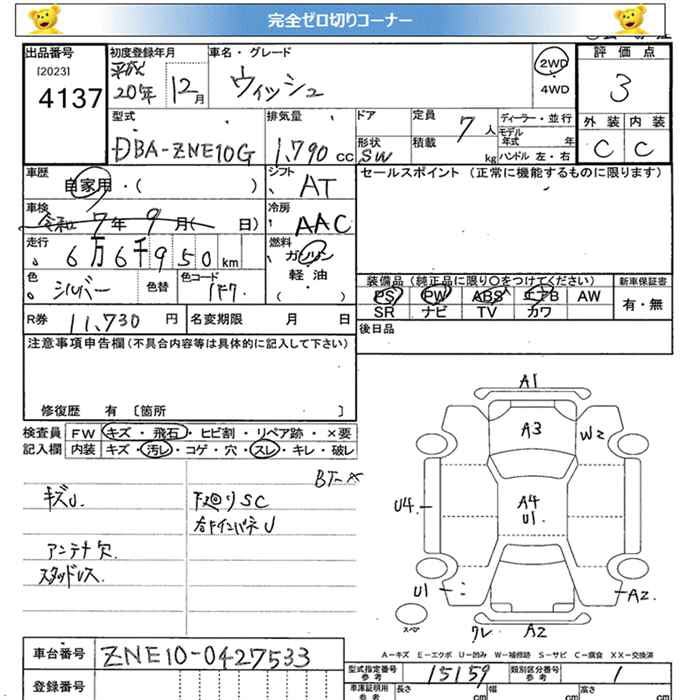 完全ゼロ切りコーナー
出品番号 初度登録年月 車名・グレード 2WD 評価点
[2023] 平成
4137 20年 12月 ウィッシュ 4WD 3
型式 排気量 ドア 定員 7人 ディーラー・並行 外装 内装
モデル年式 年
DBA-ZNE10G 1,790cc 形状 SW 積載 kg ハンドル 左・右 C C
車歴 自家用・( ) シフト AT セールスポイント (正常に機能するものに限ります)
車検 令和 7年 9月( 日) 冷房 AAC
走行 6万6千950km 燃料 ガソリン
軽油
( )
色 シルバー 色替 色コード 1F7 装備品 (純正品に限り〇をつけてください) 新車保証書
PS PW ABS エアB AW 有・無
SR ナビ TV カワ
R券 11,730円 名変期限 月 日 後日品
注意事項申告欄(不具合内容等は具体的に記入して下さい)
修復歴 有 〔箇所 〕
検査員 FW キズ・飛石・ヒビ割・リペア跡・×要
記入欄 内装 キズ・汚レ・コゲ・穴・スレ・キレ・破レ
キズU.
下廻りSC
右ドインパネU
アンテナ欠.
スタッドレス.
A1
A3
W2
U4
A4
U1.
U1
A2
ワレ A2
スペア
A-キズ E-エクボ U-凹み W-補修跡 S-サビ C-腐食 XX-交換済
車台番号 ZNE10-0427533
登録番号
型式指定番号 参考 15159 類別区分番号 参考 1
車庫証明用 参考 長さ cm 幅 cm 高さ cm